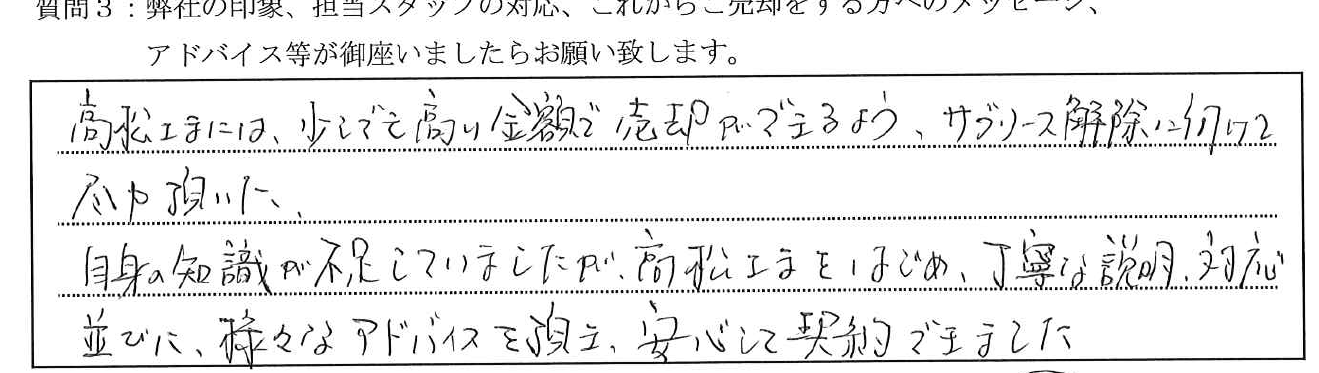 質問３：弊社の印象、担当スタッフの対応、これからご売却をする方へのメッセージ、
アドバイス等が御座いましたらお願い致します。
高松さまには、少しでも高い金額で売却ができるよう、サブリース解除に向けて
尽力頂いた、
自身の知識が不足していましたが、高松さまをはじめ、丁寧な説明、対応
並びに、様々なアドバイスを頂き、安心して契約できました